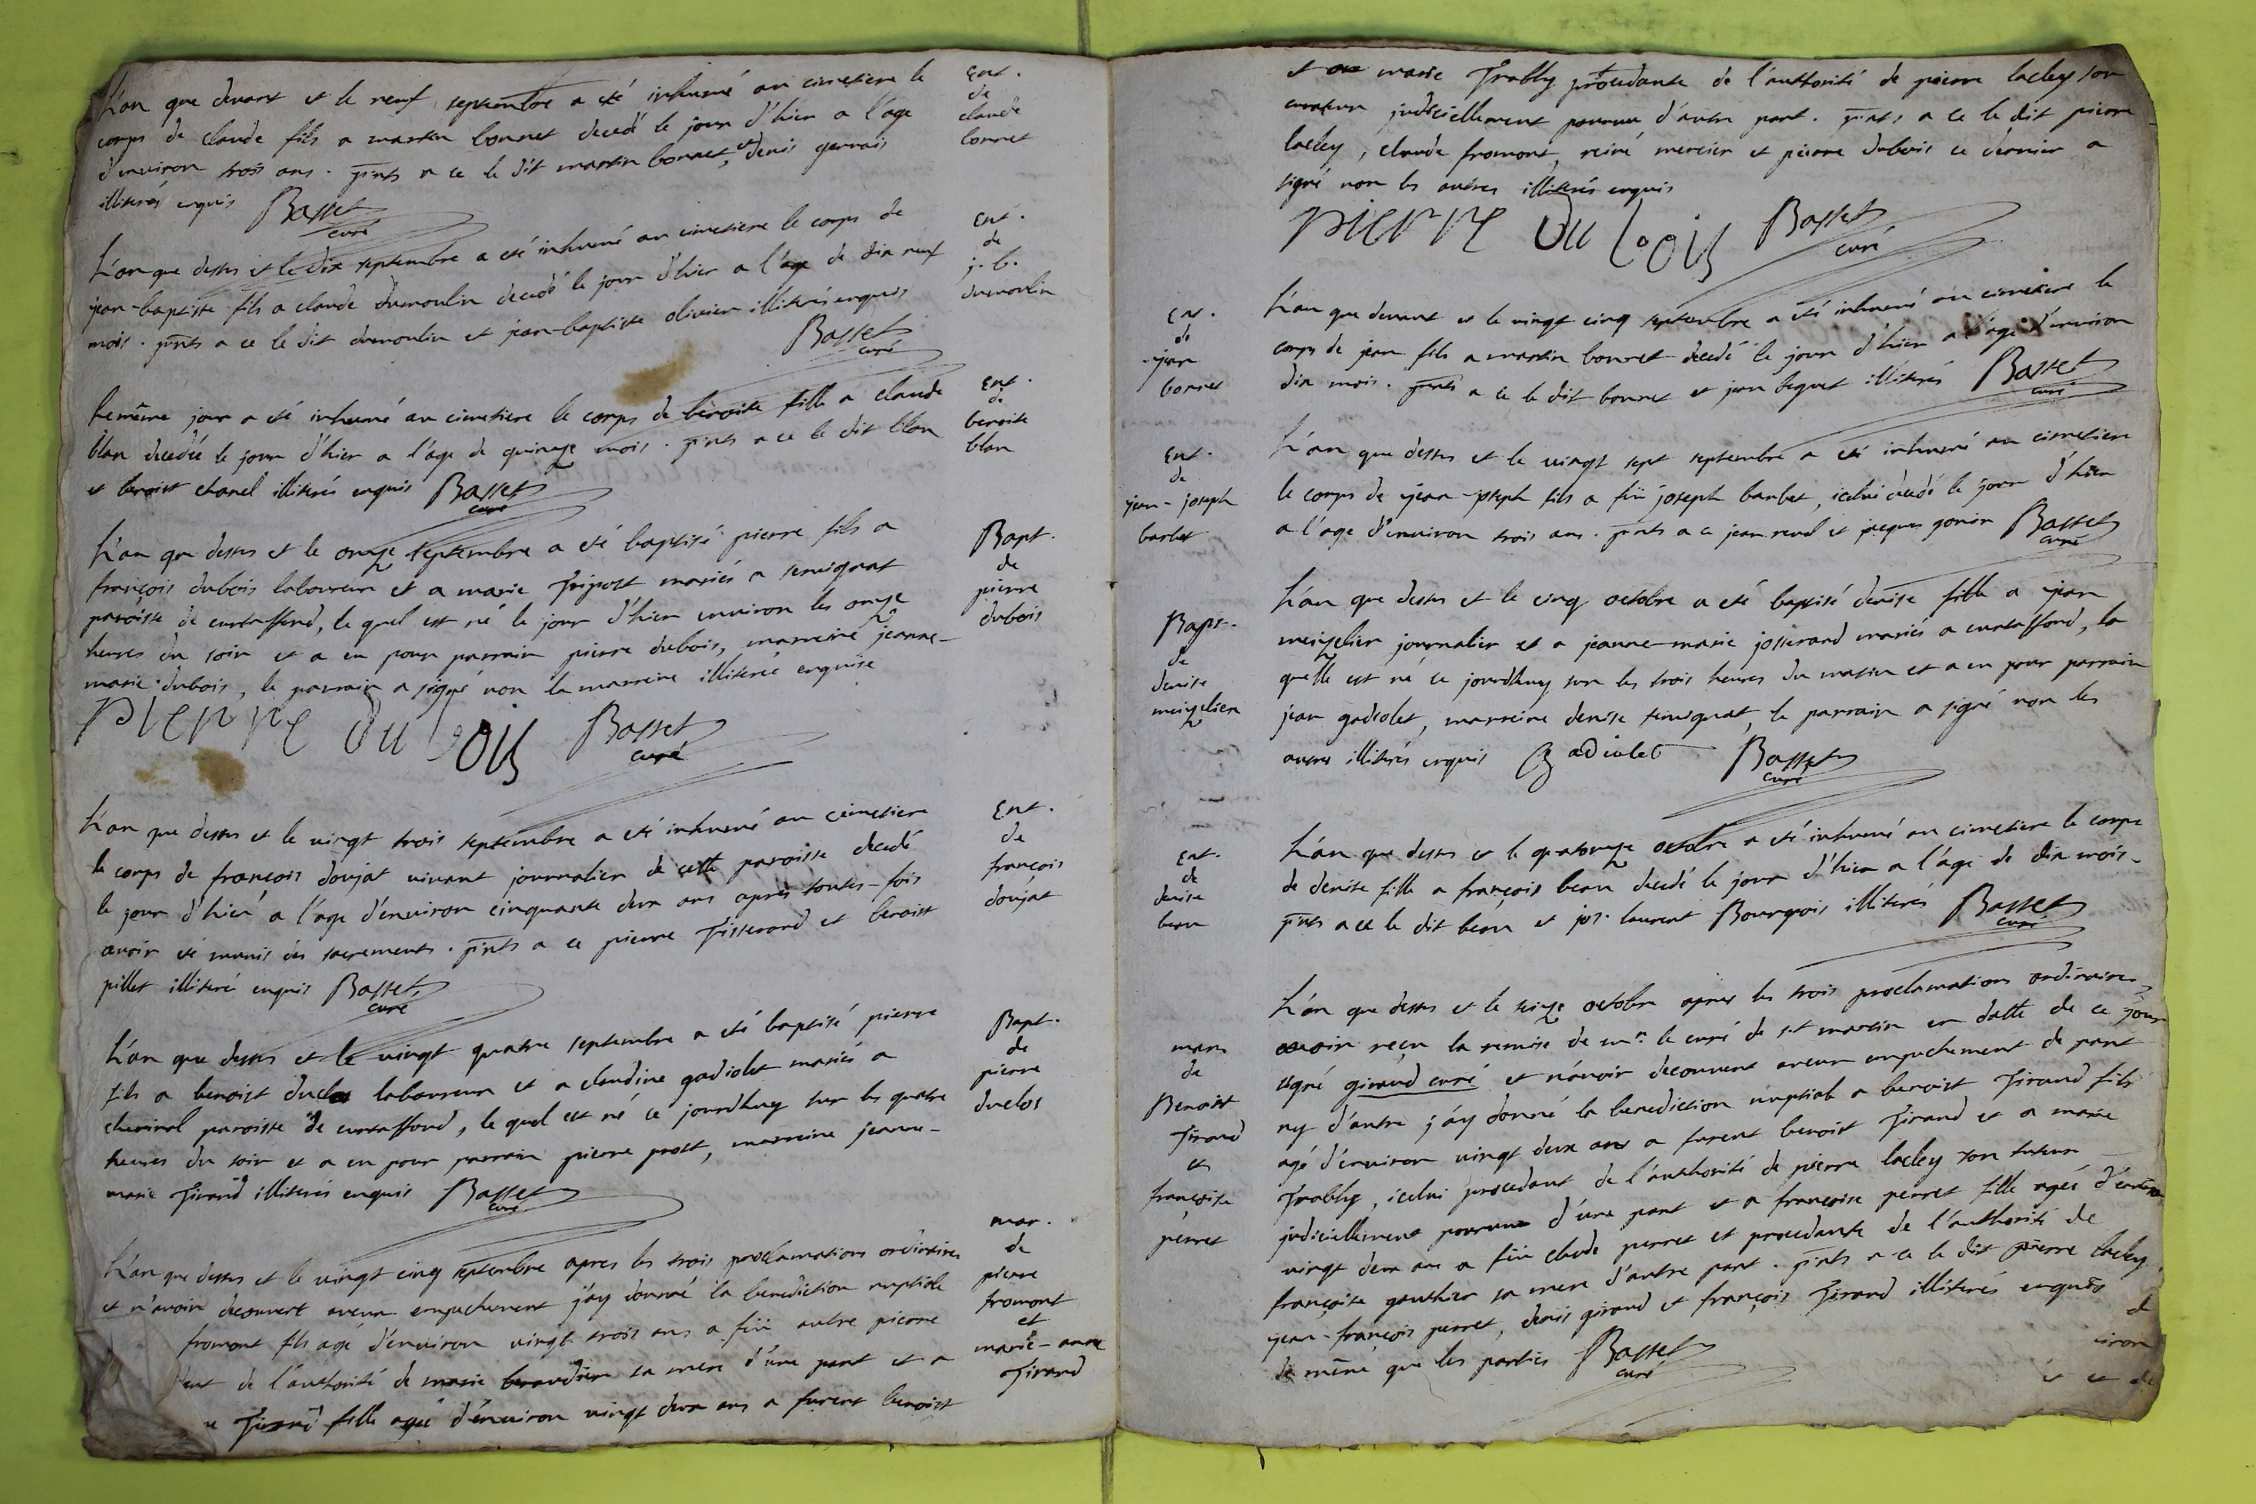 L'an que devant et le neuf septembre a été inhumé au cimetiere le
corps de claude fils a martin bonnet decedé le jour d'hier a l'age
d'environ trois ans. pnts a ce le dit martin bonnet, et denis gervais
illiterés enquis Basset curé
Ent.
de
claude
bonnet
L'an que dessus et le dix septembre a été inhumé au cimetiere le corps de
jean-baptiste fils a claude dumoulin decedé le jour d'hier a l'age de dix neuf
mois. pnts a ce le dit dumoulin et jean-baptiste olivier illiterés enquis
Basset curé
Ent.
de
j. b.
dumoulin
Le même jour a été inhumé au cimetiere le corps de benoite fille a claude
blan decedée le jour d'hier a l'age de quinze mois. pnts a ce le dit blan
et benoist chanel illiterés enquis Basset curé
Ent.
de
benoite
blan
L'an que dessus et le onze septembre a été baptisé pierre fils a
françois dubois laboureur et a marie Tripost mariés a
paroisse de curtaffond, le quel est né le jour d'hier environ les onze
heures du soir et a eu pour parrain pierre dubois, marreine jeanne-
marie dubois, le parrain a signé non la marreine illiterée enquise
pierre du bois Basset curé
Bapt.
de
pierre
dubois
L'an que dessus et le vingt trois septembre a été inhumé au cimetiere
le corps de françois doujat vivant journalier de cette paroisse decedé
le jour d'hier a l'age d'environ cinquante deux ans apres toutes-fois
avoir été munis des sacrements. pnts a ce pierre Tisserand et benoist
pillet illiteré enquis Basset curé
Ent.
de
françois
doujat
L'an que dessus et le vingt quatre septembre a été baptisé pierre
fils a benoist duclos laboureur et a claudine gadiolet mariés a
cheviral paroisse de curtaffond, le quel est né ce jourdhuy sur les quatre
heures du soir et a eu pour parrain pierre prost, marreine jeanne-
marie Tirand illiterés enquis Basset curé
Bapt.
de
pierre
duclos
L'an que dessus et le vingt cinq septembre apres les trois proclamations ordinaires
et n'avoir decouvert aucun empechement j'ay donné la benediction nuptiale
fromont fils agé d'environ vingt trois ans a fûü autre pierre
de l'authorité de marie beraudier sa mere d'une part et a
Tirand fille agée d'environ vingt deux ans a furent benoist
mar.
de
pierre
fromont
et
marie-anne
Tirand
et a marie Trably procedante de l'authorité de pierre lacley son
curateur judiciellement pourvue d'autre part. pnts a ce le dit pierre
lacley, claude fromont, reiné mercier et pierre dubois ce dernier a
signé non les autres illiterés enquis
pierre du bois Basset curé
Ent.
de
jean
bonnet
L'an que devant et le vingt cinq septembre a été inhumé au cimetiere le
corps de jean fils a martin bonnet decedé le jour d'hier a l'age d'environ
dix mois. pnts a ce le dit bonnet et jean illiterés Basset curé
Ent.
de
jean-joseph
barbet
L'an que dessus et le vingt sept septembre a été inhumé au cimetiere
le corps de jean-joseph fils a fûü joseph barbet, icelui decedé le jour d'hier
a l'age d'environ trois ans. pnts a ce jean renel et jacques gonin Basset curé
Bapt.
de
denise
meizelier
L'an que dessus et le cinq octobre a été baptisé denise fille a jean
meizelier journalier et a jeanne-marie josserand mariés a curtaffond, la
quelle est né ce jourdhuy sur les trois heures du matin et a eu pour parrain
jean gadiolet, marreine denise, le parrain a signé non les
autres illiterés enquis Gadiolet Basset curé
Ent.
de
denise
beau
L'an que dessus et le quatorze octobre a été inhumé au cimetiere le corps
de denise fille a françois beau decedé le jour d'hier a l'age de dix mois.
pnts a ce le dit beau et jos. laurent Bourgeois illiterés Basset curé
mar.
de
Benoist
Tirand
et
françoise
perret
L'an que dessus et le seize octobre apres les trois proclamations ordinaires
avoir reçu la remise de mr. le curé de st martin en datte de ce jour
signé girand curé et n'avoir decouvert aucun empechement de part
ny d'autre j'ay donné la benediction nuptiale a benoist Tirand fils
agé d'environ vingt deux ans a furent benoist Tirand et a marie
Trably, icelui procedant de l'authorité de pierre lacley son tuteur
judiciellement pourvue d'une part et a françoise perret fille agée d'environ
vingt deux ans a fûü claude perret et procedante de l'authorité de
françoise gauthier sa mere d'autre part. pnts a ce le dit pierre lacley,
jean-françois perret, denis girand et françois Tirand illiterés enquis
de même que les parties Basset curé